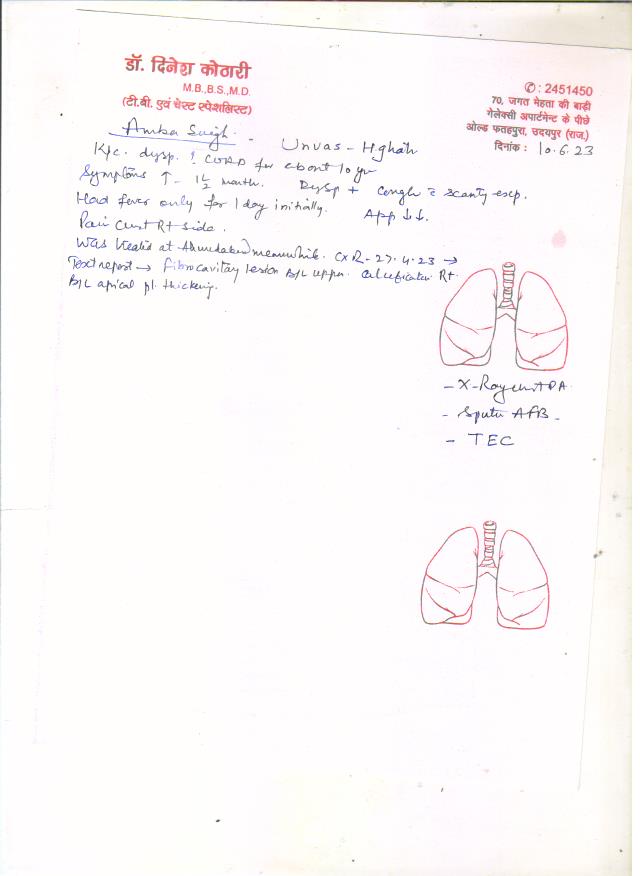 डॉ. दिनेश कोठारी
M.B.,B.S.,M.D.
(टी.बी. एवं चेस्ट स्पेशलिस्ट)
✆ : 2451450
70, जगत मेहता की बाड़ी
गेलेक्सी अपार्टमेन्ट के पीछे
ओल्ड फतहपुरा, उदयपुर (राज.)
दिनांक : 10.6.23
Amba Singh. - Unvas - H.ghati
K/c. dysp. ? COAD for about 10 yr
Symptoms ↑ - 1½ month. Dysp + Cough c̄ scanty exp.
Had fever only for 1 day initially. App ↓↓.
Pain chest Rt side.
Was treated at Ahmedabad meanwhile. CXR - 27.4.23 →
Text report → fibrocavitary lesion B/L upper. Calcification Rt.
B/L apical pl. thickening.
- X-Ray chest PA
- Sputu AFB -
- TEC